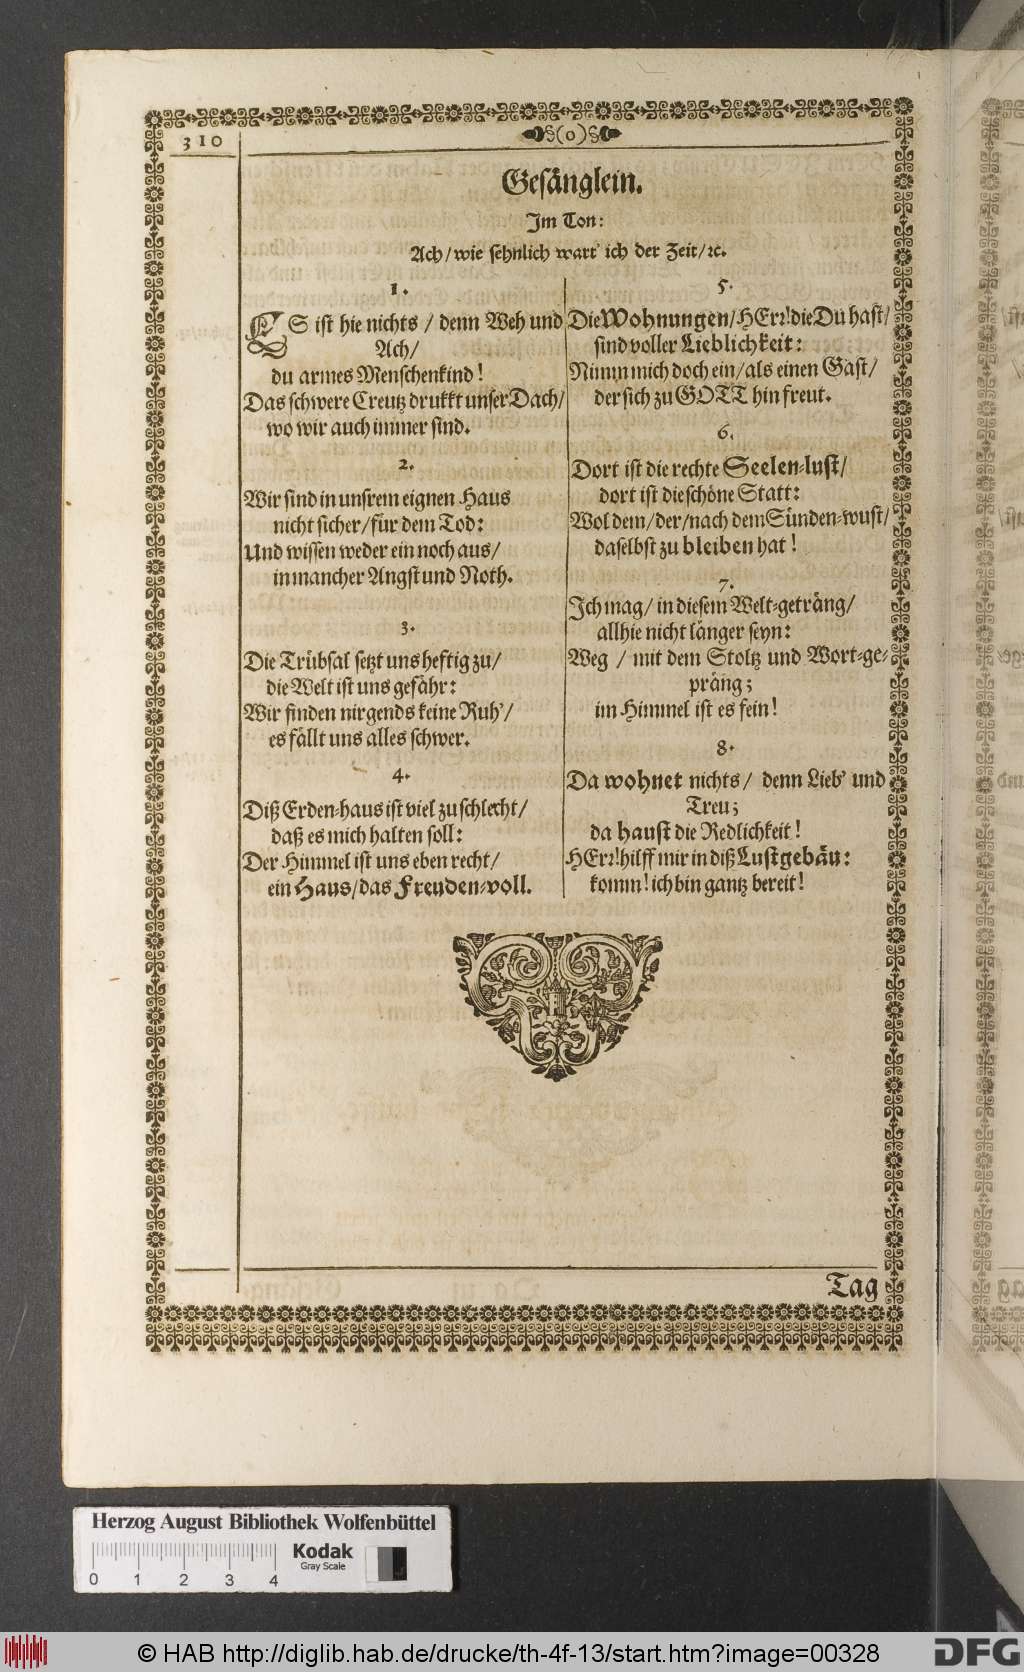 310
§(0)§
Gesänglein.
Im Ton:
Ach/wie sehnlich wart' ich der Zeit/ꝛc.
1.
ES ist hie nichts / denn Weh und
Ach/
du armes Menschenkind!
Das schwere Creutz drukkt unser Dach/
wo wir auch immer sind.
2.
Wir sind in unsrem eignen Haus
nicht sicher/für dem Tod:
Und wissen weder ein noch aus/
in mancher Angst und Noth.
3.
Die Trübsal setzt uns heftig zu/
die Welt ist uns gefähr:
Wir finden nirgends keine Ruh'/
es fällt uns alles schwer.
4.
Diß Erden-haus ist viel zu schlecht/
daß es mich halten soll:
Der Himmel ist uns eben recht/
ein Haus/das Freuden-voll.
5.
Die Wohnungen/HErr! die Du hast/
sind voller Lieblichkeit:
Nimm mich doch ein/als einen Gast/
der sich zu GOTT hin freut.
6.
Dort ist die rechte Seelen-lust/
dort ist die schöne Statt:
Wol dem/der/nach dem Sünden-wust/
daselbst zu bleiben hat!
7.
Ich mag/ in diesem Welt-geträng/
allhie nicht länger seyn:
Weg / mit dem Stoltz und Wort-ge-
präng;
im Himmel ist es fein!
8.
Da wohnet nichts/ denn Lieb' und
Treu;
da haust die Redlichkeit!
HErr! hilff mir in diß Lustgebäu:
komm! ich bin gantz bereit!
Tag
Herzog August Bibliothek Wolfenbüttel
Kodak
Gray Scale
0 1 2 3 4
© HAB http://diglib.hab.de/drucke/th-4f-13/start.htm?image=00328
DFG